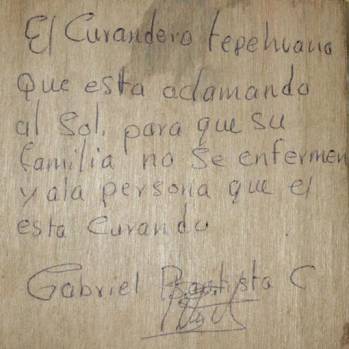 El Curandero tepehuano
que esta aclamando
al Sol, para que su
familia no se enfermen
y ala persona que el
esta Curando
Gabriel Bautista C